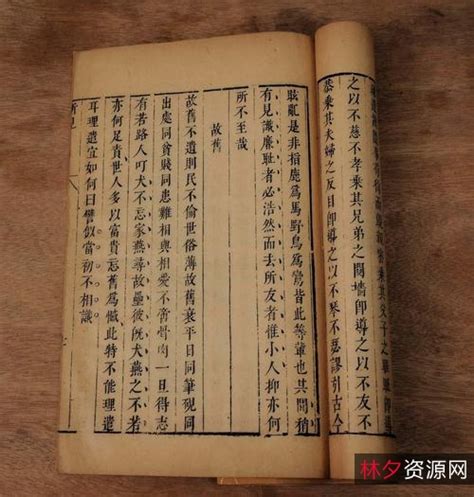 乘其父子之
之以不慈不孝乘其兄弟之鬩墻卽導之以不友不
恭乘其夫婦之反目卽導之以不琴不瑟謬引古今
眩亂是非指鹿為馬野鳥為鸞皆此等輩也其間稍
有見識廉耻者必浩然而去所友者惟小人抑亦何
所不至哉
故舊
故舊不遺則民不偷世俗薄故舊衰平日同筆硯同
出處同貧賤同患難相與相愛不啻骨肉一旦得志
有若路人吁犬不忘家燕尋故壘彼旣犬燕之不若
亦何足責世人多以富貴忘舊為憾此特不能理遣
耳理遣宜如何曰譬似當初不相識
林夕资源网